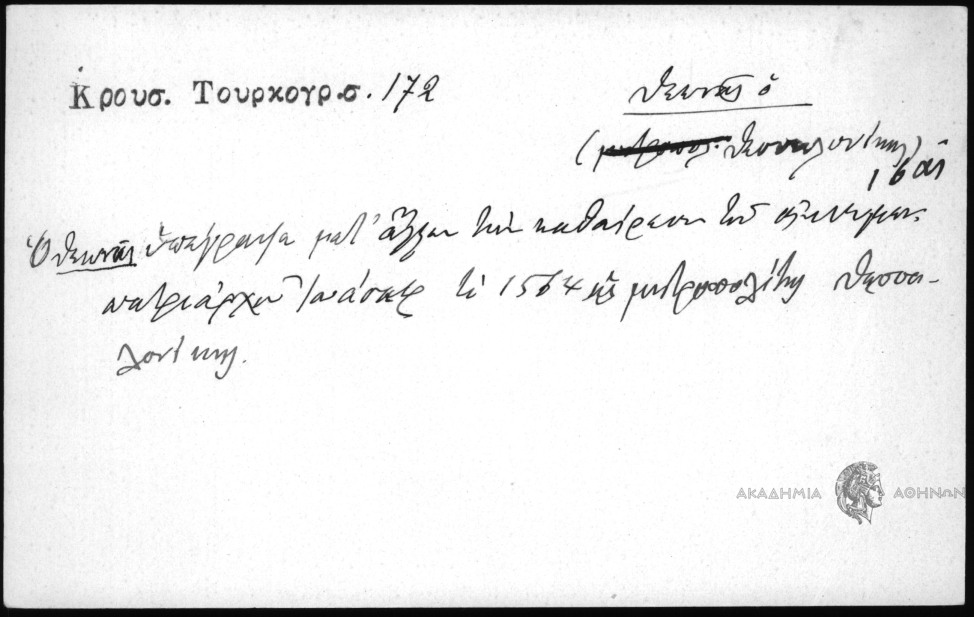 Κρουσ. Τουρκογρ.σ. 172
Θεωνᾶς ὁ
(μητροπολ. Θεσσαλονίκης)
16 ᾱς
Ὁ Θεωνᾶς ὑπέγραψε μετ' ἄλλων τὴν καθαίρεσιν τοῦ
πατριάρχου Ἰωάσαφ τῷ 1564 ὡς μητροπολίτης Θεσσα-
λονίκης.
ΑΚΑΔΗΜΙΑ ΑΘΗΝΩΝ